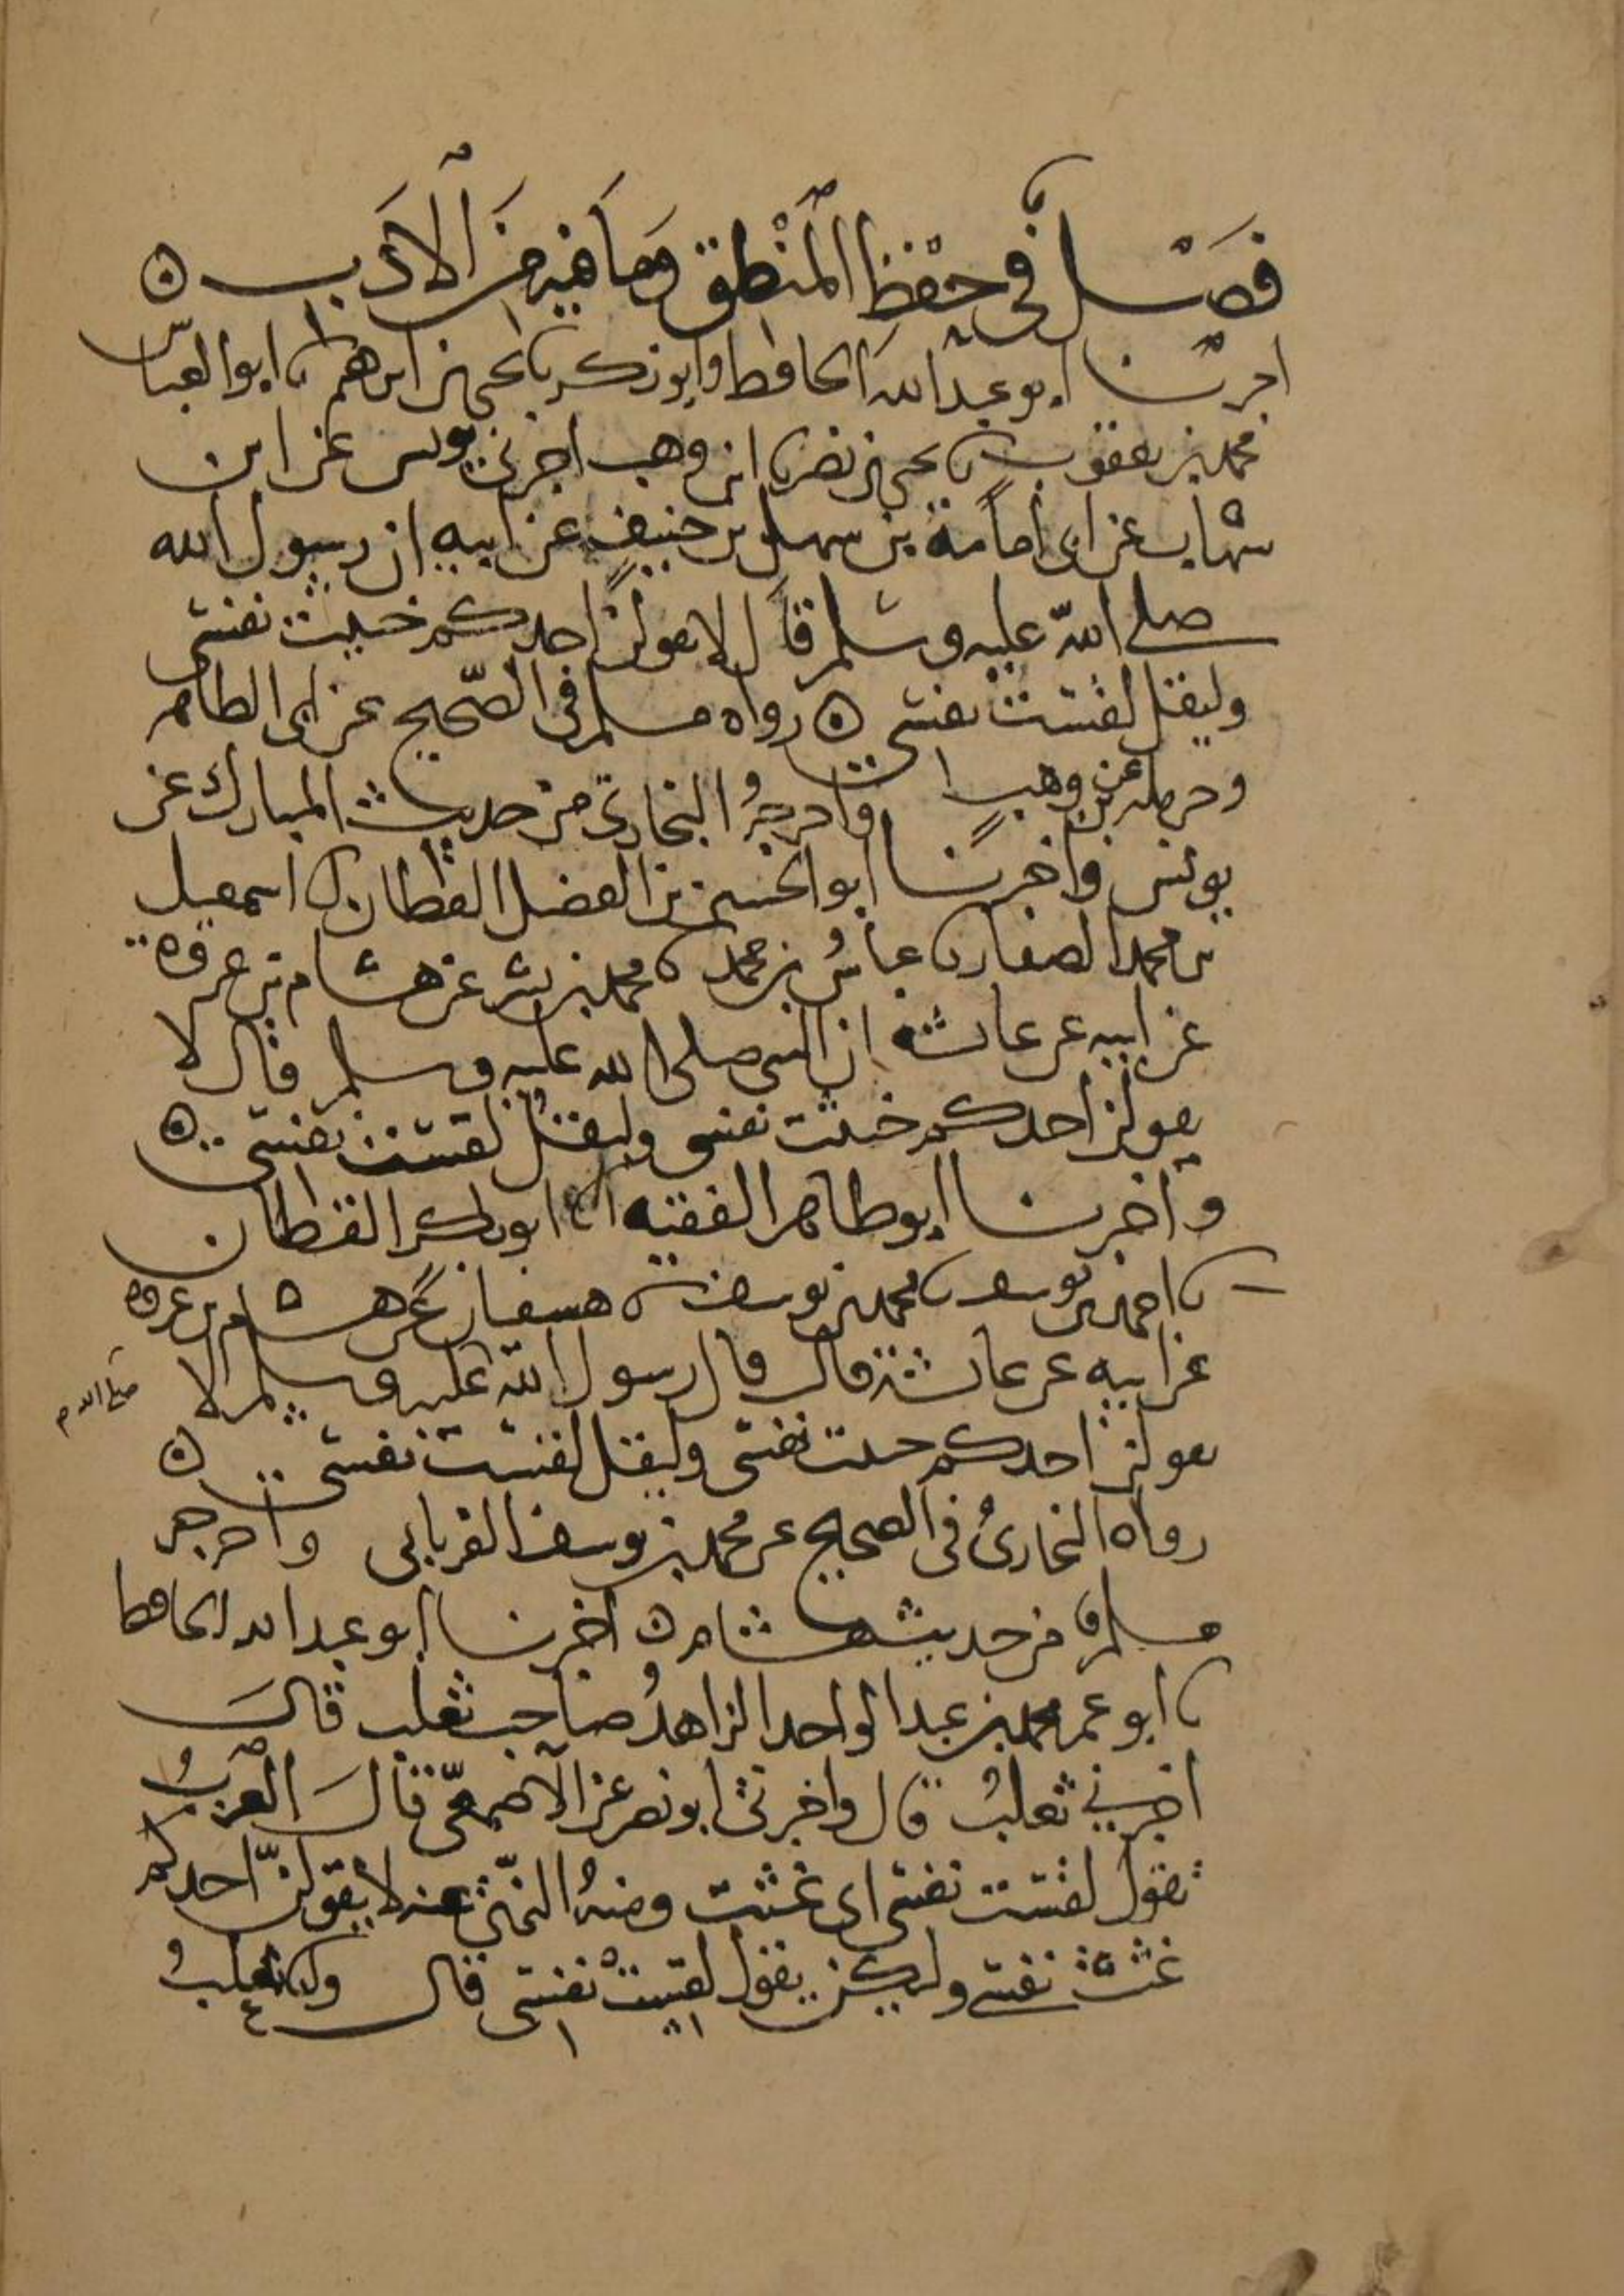 فَصْل في حِفْظِ المَنْطِق وَمَا فيه مِنَ الأَدَب ه
اخبرنا ابو عبد الله الحافظ وابو زكريا يحيى بن ابرهيم نا ابو العبّاس
محمد بن يعقوب نا يحيى بن نصر نا ابن وهب اخبرني يونس عن ابن
شهاب عن ابى امامة بن سهل بن حنيف عن ابيه ان رسول الله
صلى الله عليه وسلم قال لا يقولن احدكم خبيث نفسي
وليقل لقست نفسي ه رواه مسلم في الصّحيح عن ابى الطاهر
وحرمله عن بن وهب واخرجهُ البخاري من حديث المبارك عن
يونس واخبرنا ابو الحسين بن الفضل القطان انا اسمعيل
بن محمد الصفار نا عباسُ بن محمد نا محمد بن بشر عن هشام بن عروة
عن ابيه عن عائشة ان النبي صلى الله عليه وسلم قال لا
يقولن احدكم خبثت نفسي وليقل لقست نفسي ه
واخبرنا ابو طاهر الفقيه انا ابو بكر القطان
نا احمد بن يوسف نا محمد بن يوسف نا سفيان عن هشام بن عروة
عن ابيه عن عائشة قالت قال رسول الله عليه وسلم لا صلى الله
يقولن احدكم خبثت نفسي وليقل لقست نفسي ه
رواه البخاريُ في الصحيح عن محمد بن يوسف الفريابي واخرجه
مسلم من حديث هشام ه اخبرنا ابو عبد الله الحافظ
نا ابو عمر محمد بن عبد الواحد الزاهدُ صاحب ثعلب قالَ
اخبرني ثعلبُ قال واخبرني ابو نصر عن الأصمعيّ قالَ العربُ
تقول لقست نفسي اي غثت ومنهُ لا يقولنّ احدكم
غثت نفسي ولكن يقول لقست نفسي قال ثعلبُ